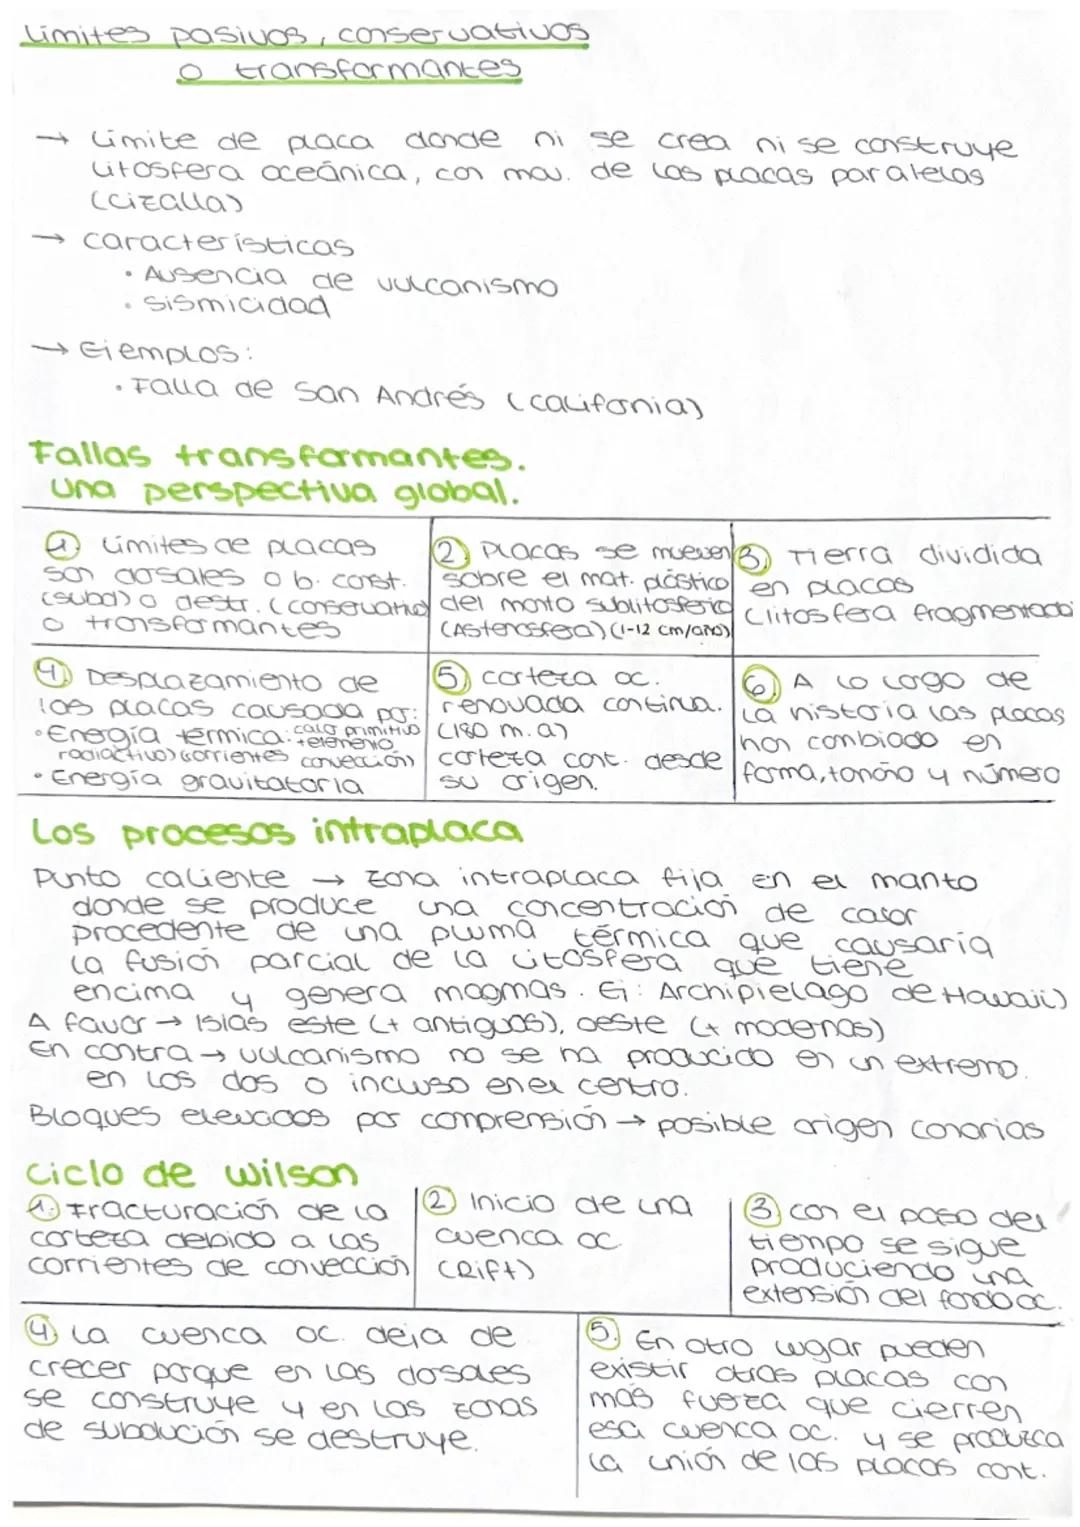 Límites pasivos, conservativos
o transformantes
→ Límite de placa donde ni se crea ni se construye
litosfera oceánica, con mov. de las placas paralelas
(cizalla)
→ características
• Ausencia de vulcanismo
• sismicidad
→ Ejemplos:
• Falla de San Andrés (california)
Fallas transformantes.
Una perspectiva global.
1. Límites de placas
son dorsales o b. const.
(subd) o destr. (conservativo
o transformantes
2. Placas se mueven
sobre el mat. plástico
del manto sublitosferico
(Astenosfera) (1-12 cm/año)
3. Tierra dividida
en placas
(litosfera fragmentada
4. Desplazamiento de
las placas causada por:
• Energía térmica: calor primitivo
+ elemento
radiactivo) (corrientes convección)
• Energía gravitatoria
5. corteza oc.
renovada continua.
(180 m.a)
corteza cont. desde
su origen.
6. A lo largo de
la historia las placas
han cambiado en
forma, tamaño y número
Los procesos intraplaca
Punto caliente → zona intraplaca fija en el manto
donde se produce una concentración de calor
procedente de una pluma térmica que causaría
la fusión parcial de la litosfera que tiene
encima y genera magmas. Ej: Archipielago de Hawaii)
A favor → Islas este (+ antiguas), oeste (+ modernas)
En contra → vulcanismo no se ha producido en un extremo.
en los dos o incluso en el centro.
Bloques elevados por comprensión → posible origen canarias
Ciclo de Wilson
1. Fracturación de la
corteza debido a las
corrientes de convección
2. Inicio de una
cuenca oc
(Rift)
3. con el paso del
tiempo se sigue
produciendo una
extensión del fondo oc.
4. La cuenca oc. deja de
crecer porque en las dorsales
se construye y en las zonas
de subdución se destruye.
5. En otro lugar pueden
existir otras placas con
más fuerza que cierren
esa cuenca oc. y se produzca
la unión de las placas cont.